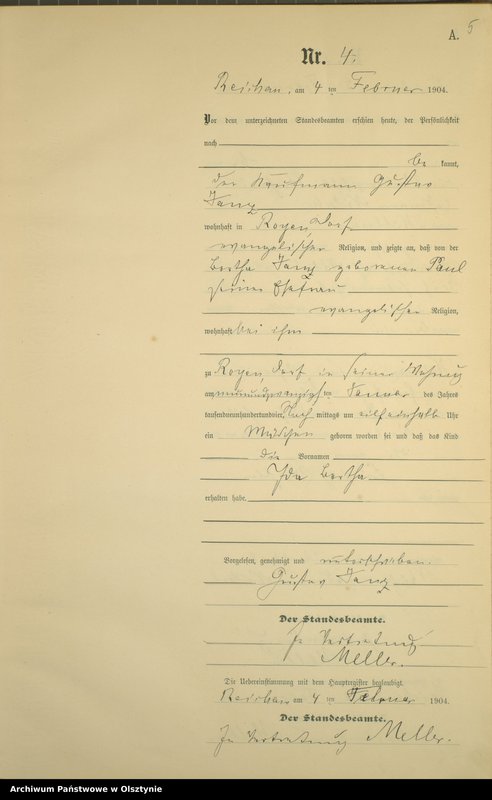 A.
5
Nr. 4.
Reichau, am 4 ten Februar 1904.
Vor dem unterzeichneten Standesbeamten erschien heute, der Persönlichkeit
nach
be kannt,
der Kaufmann Gustav
wohnhaft in Rogendorf
evangelischer Religion, und zeigte an, daß von der
Bertha geborenen Paul
seiner Ehefrau
evangelischer Religion,
wohnhaft bei ihm
zu Rogendorf in seiner Wohnung
am neunundzwanzigsten Januar des Jahres
tausendneunhundertundvier, Nach mittags um Uhr
ein Mädchen geboren worden sei und daß das Kind
die Vornamen
Ida Bertha
erhalten habe.
Vorgelesen, genehmigt und unterschrieben.
Gustav
Der Standesbeamte.
In Vertretung
Meller.
Die Uebereinstimmung mit dem Hauptregister beglaubigt.
Reichau, am 4 ten Februar 1904.
Der Standesbeamte.
In Vertretung Meller.
Archiwum Państwowe w Olsztynie